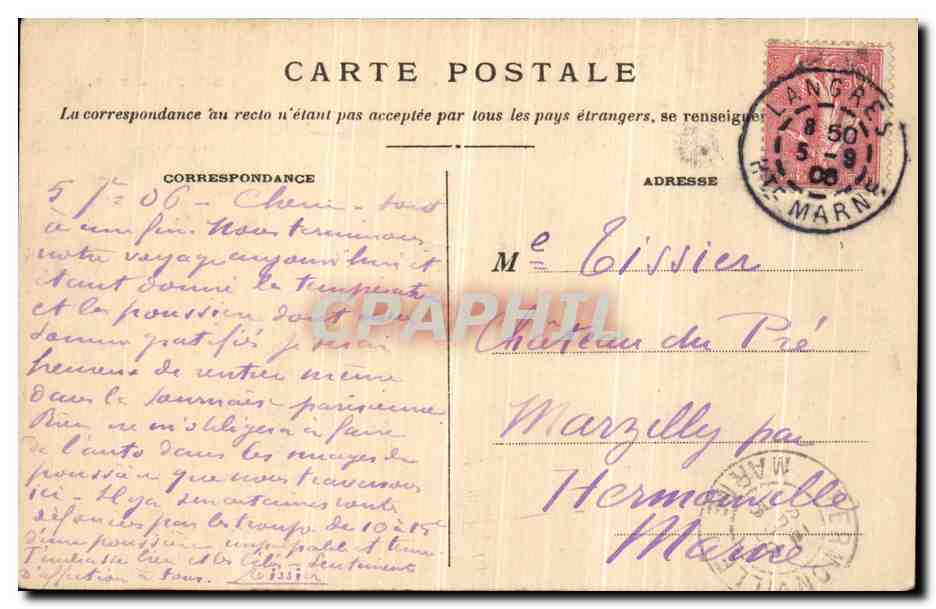 CARTE POSTALE
La correspondance au recto n'étant pas acceptée par tous les pays étrangers, se renseigner
LANGRES
8 50
5 - 9
06
Hte MARNE
CORRESPONDANCE
ADRESSE
5 7re 06 - Cherie - tout
à une fin. Nous terminons
notre voyage aujourd'hui et
étant donné la température
et la poussière dont nous
sommes gratifiés je serai
heureux de rentrer même
dans la fournaise parisienne
Rien ne m'obligera à faire
de l'auto dans les nuages de
poussière que nous traversons
ici - Il y a sur certaines routes
défoncées par les troupes de 10 à 15c
d'une poussière impalpable et tenue
T'embrasse bien et les - Sentiments
d'affection à tous. Tissier
Me Tissier
Château du Pré
Marzilly par
Hermonville
Marne
HERMONVILLE
MARNE
CPAPHIL